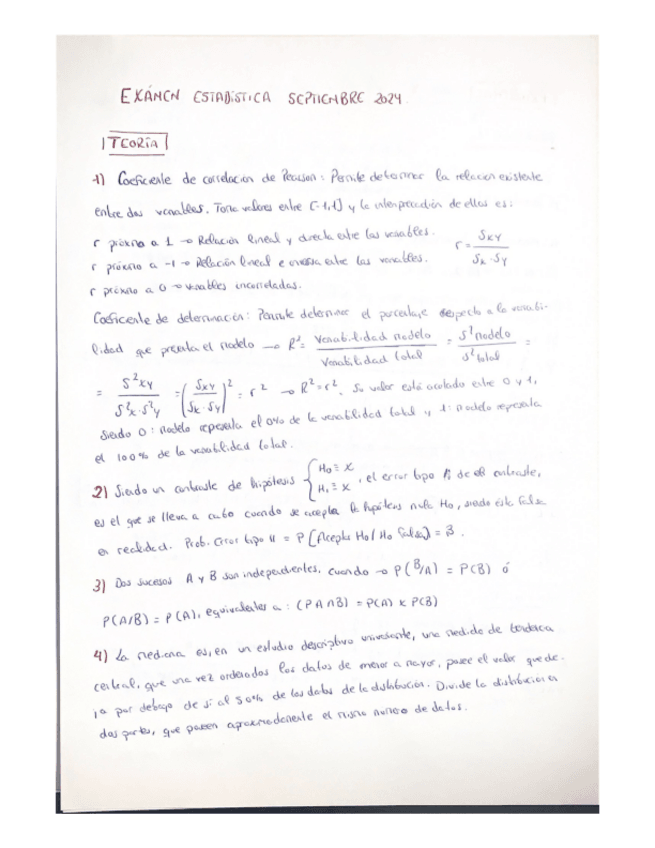 EXÁMEN ESTADÍSTICA SEPTIEMBRE 2024.
TEORÍA
1) Coeficiente de correlación de Pearson: Permite determinar la relación existente
entre dos variables. Toma valores entre [-1,1] y la interpretación de ellos es:
r próximo a 1 → Relación lineal y directa entre las variables.
r próximo a -1 → Relación lineal e inversa entre las variables.
r próximo a 0 → variables incorreladas.
r = SXY / Sx · Sy
Coeficiente de determinación: Permite determinar el porcentaje respecto a la variabi-
lidad que presenta el modelo → R² = Variabilidad modelo / Variabilidad total = S² modelo / S² total =
= S²xy / S²x · S²y = (Sxy / Sx · Sy)² = r² → R² = r². Su valor está acotado entre 0 y 1,
siendo 0: modelo representa el 0% de la variabilidad total y 1: modelo representa
el 100% de la variabilidad total.
2) Siendo un contraste de hipótesis { H₀ ≡ X H₁ ≡ X , el error tipo de contraste,
es el que se lleva a cabo cuando se acepta la hipótesis nula H₀, siendo ésta falsa
en realidad. Prob. Error tipo II = P[Acepta H₀ / H₀ falsa] = B.
3) Dos sucesos A y B son independientes, cuando → P(B/A) = P(B) ó
P(A/B) = P(A), equivalentes a: (P A ∩ B) = P(A) x P(B)
4) La mediana es, en un estudio descriptivo univariante, una medida de tendencia
central, que una vez ordenados los datos de menor a mayor, posee el valor que de-
ja por debajo de sí al 50% de los datos de la distribución. Divide la distribución en
dos partes, que poseen aproximadamente el mismo número de datos.